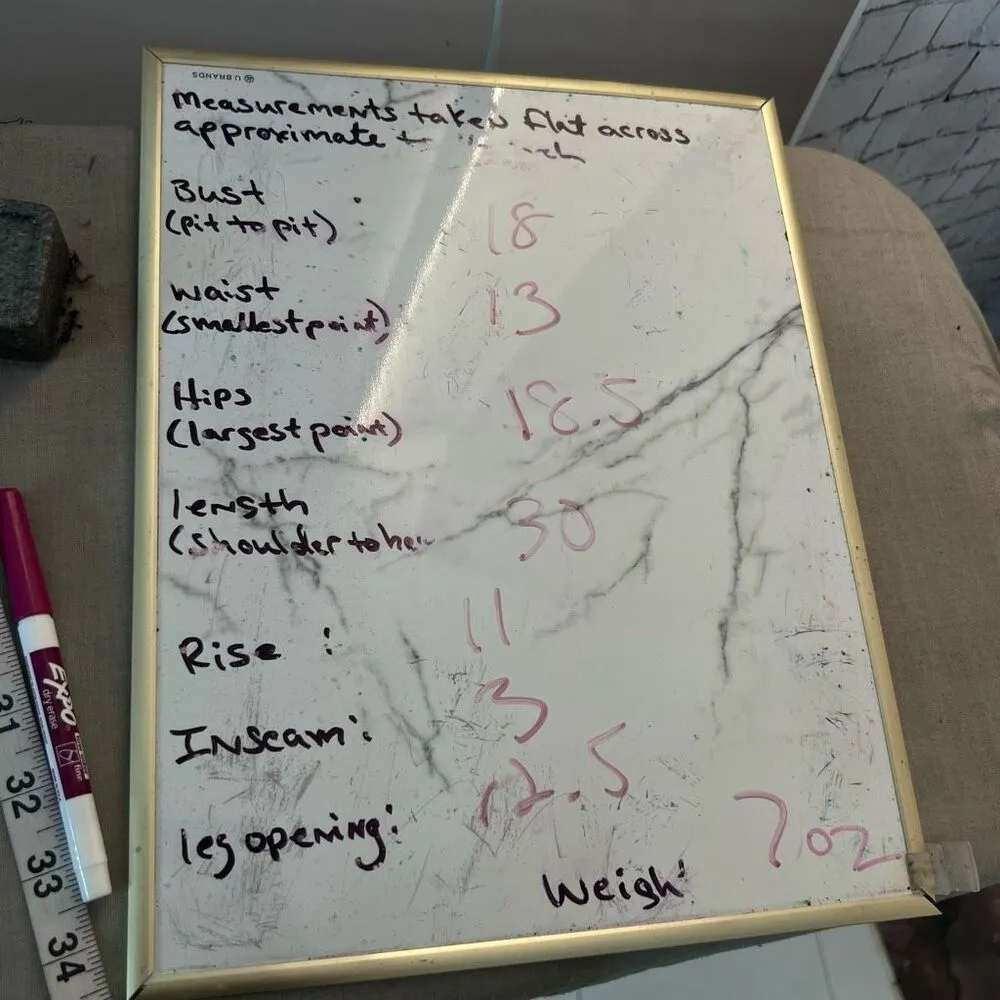 U BRANDS
Measurements taken flat across
approximate
Bust
(pit to pit) 18
waist
(smallest point) 13
Hips
(largest point) 18.5
length
(shoulder to 30
Rise : 11
Inseam: 3
leg opening: 12.5
Weigh 7oz
EXPO
dry erase
fine
31
32
33
34